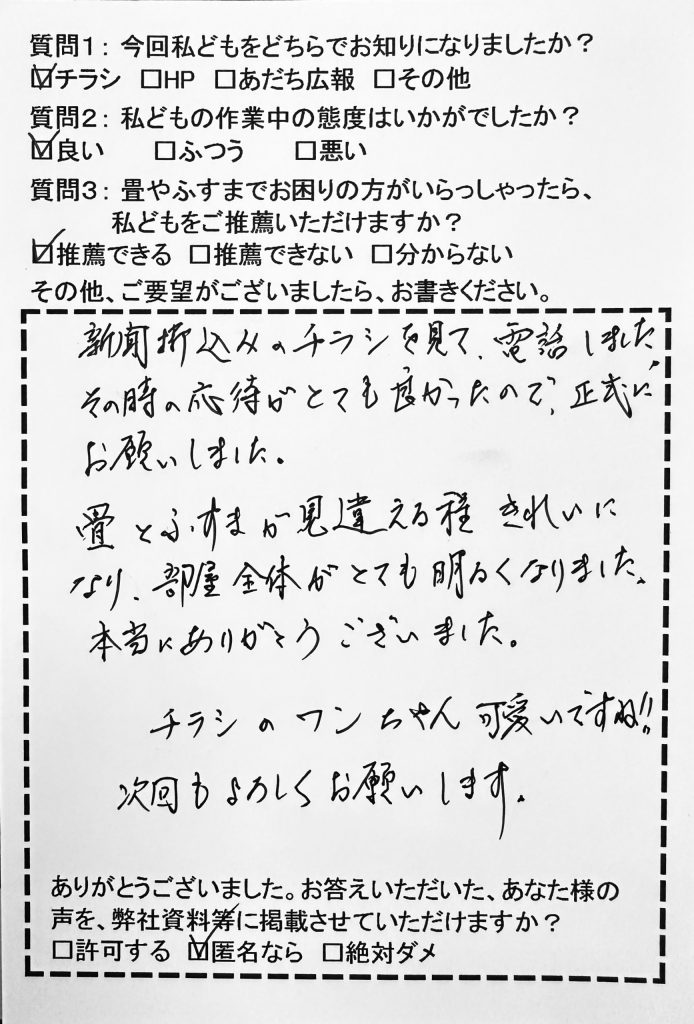 質問1：今回私どもをどちらでお知りになりましたか？
☑チラシ □HP □あだち広報 □その他
質問2：私どもの作業中の態度はいかがでしたか？
☑良い □ふつう □悪い
質問3：畳やふすまでお困りの方がいらっしゃったら、
私どもをご推薦いただけますか？
☑推薦できる □推薦できない □分からない
その他、ご要望がございましたら、お書きください。
新聞折込みのチラシを見て、電話しました。
その時の応待がとても良かったので、正式に
お願いしました。
畳とふすまが見違える程きれいに
なり、部屋全体がとても明るくなりました。
本当にありがとうございました。
チラシのワンちゃん可愛いですね!!
次回もよろしくお願いします。
ありがとうございました。お答えいただいた、あなた様の
声を、弊社資料等に掲載させていただけますか？
□許可する ☑匿名なら □絶対ダメ